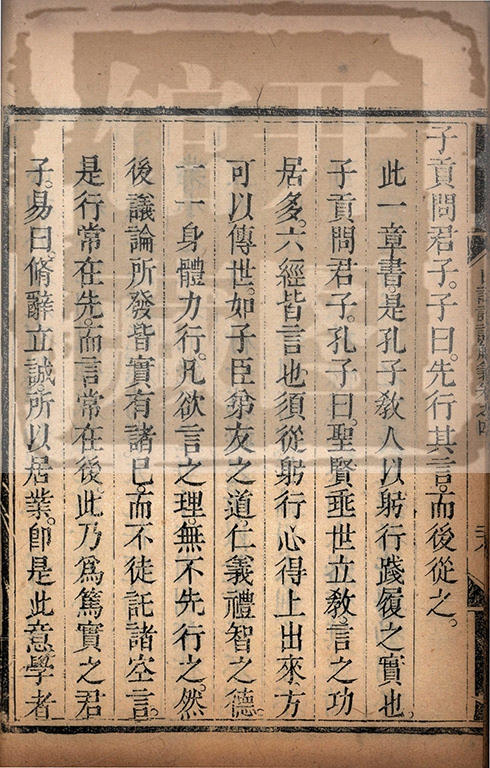 子貢問君子。子曰。先行其言。而後從之。
此一章書是孔子教人以躬行踐履之實也。
子貢問君子。孔子曰。聖賢垂世立教。言之功
居多。六經皆言也須從躬行心得上出來方
可以傳世。如子臣弟友之道。仁義禮智之德。
一一身體力行。凡欲言之理。無不先行之。然
後議論所發皆實有諸己。而不徒託諸空言。
是行常在先。而言常在後。此乃為篤實之君
子。易曰。脩辭立誠。所以居業。即是此意學者